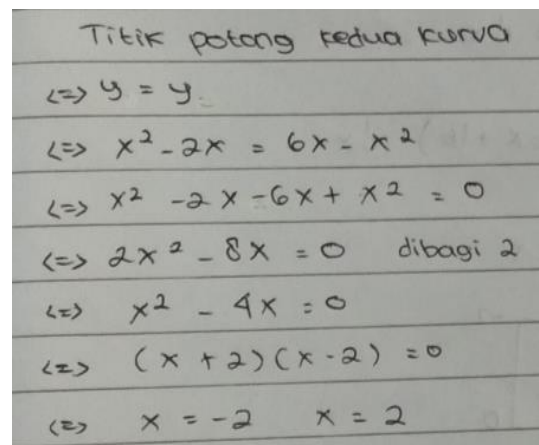 Titik potong kedua kurva
<=> y = y.
<=> x² - 2x = 6x - x²
<=> x² - 2x - 6x + x² = 0
<=> 2x² - 8x = 0 dibagi 2
<=> x² - 4x = 0
<=> (x + 2)(x - 2) = 0
<=> x = -2 x = 2